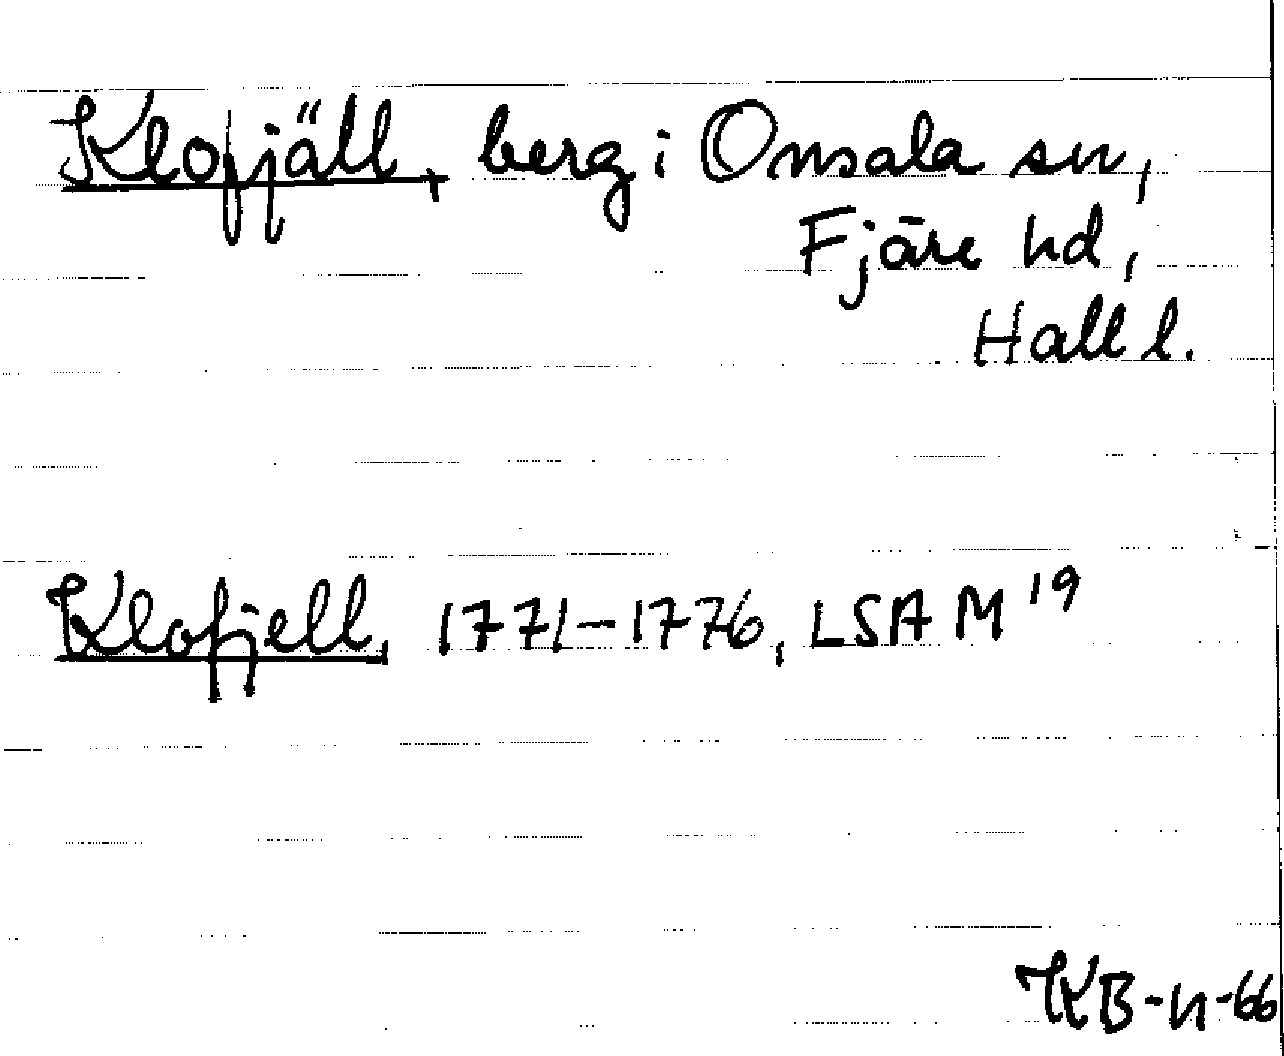 Klofjäll, berg i Onsala sn,
Fjäre hd,
Hall l.
Klofjell, 1771-1776, LSA M 19
KB-n-66